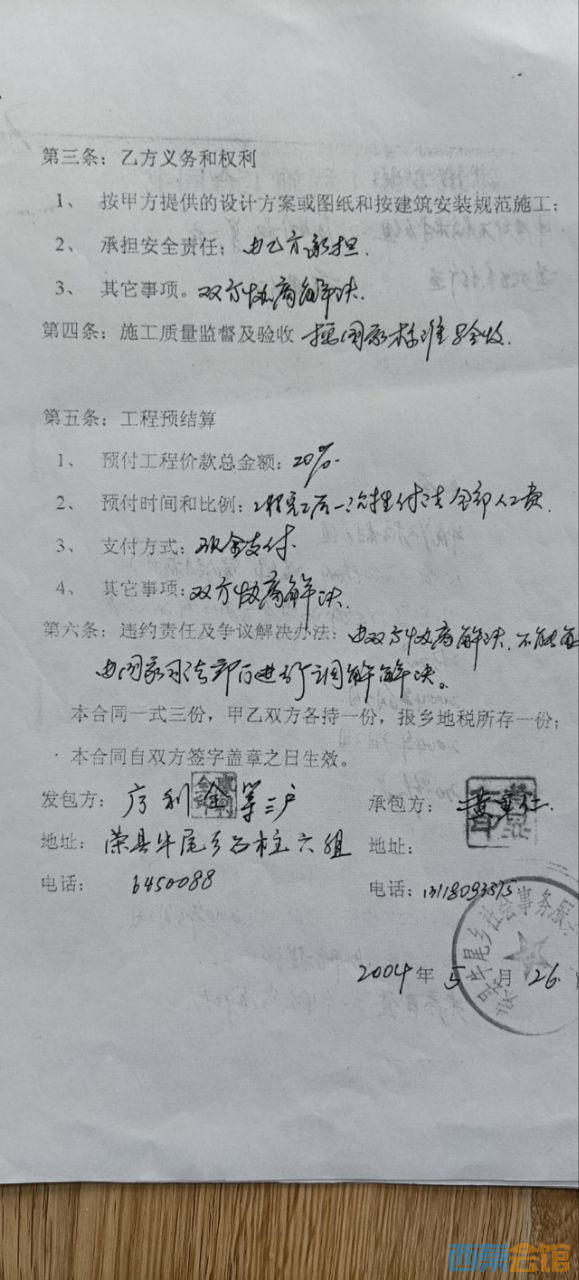 第三条：乙方义务和权利
1、 按甲方提供的设计方案或图纸和按建筑安装规范施工；
2、 承担安全责任；由乙方承担.
3、 其它事项。双方协商解决.
第四条：施工质量监督及验收 按国家标准验收.
第五条：工程预结算
1、 预付工程价款总金额：20%.
2、 预付时间和比例：工程完工后一次性付清全部人工费.
3、 支付方式：现金支付.
4、 其它事项：双方协商解决.
第六条：违约责任及争议解决办法：由双方协商解决.不能
由国家司法部门进行调解解决。
本合同一式三份，甲乙双方各持一份，报乡地税所存一份；
本合同自双方签字盖章之日生效。
发包方： 利金等三户 承包方：黄
地址： 荣县牛尾乡石柱六组 地址：
电话： 6450088 电话：
牛尾乡社会事务服
2004年5月26
西荣会馆